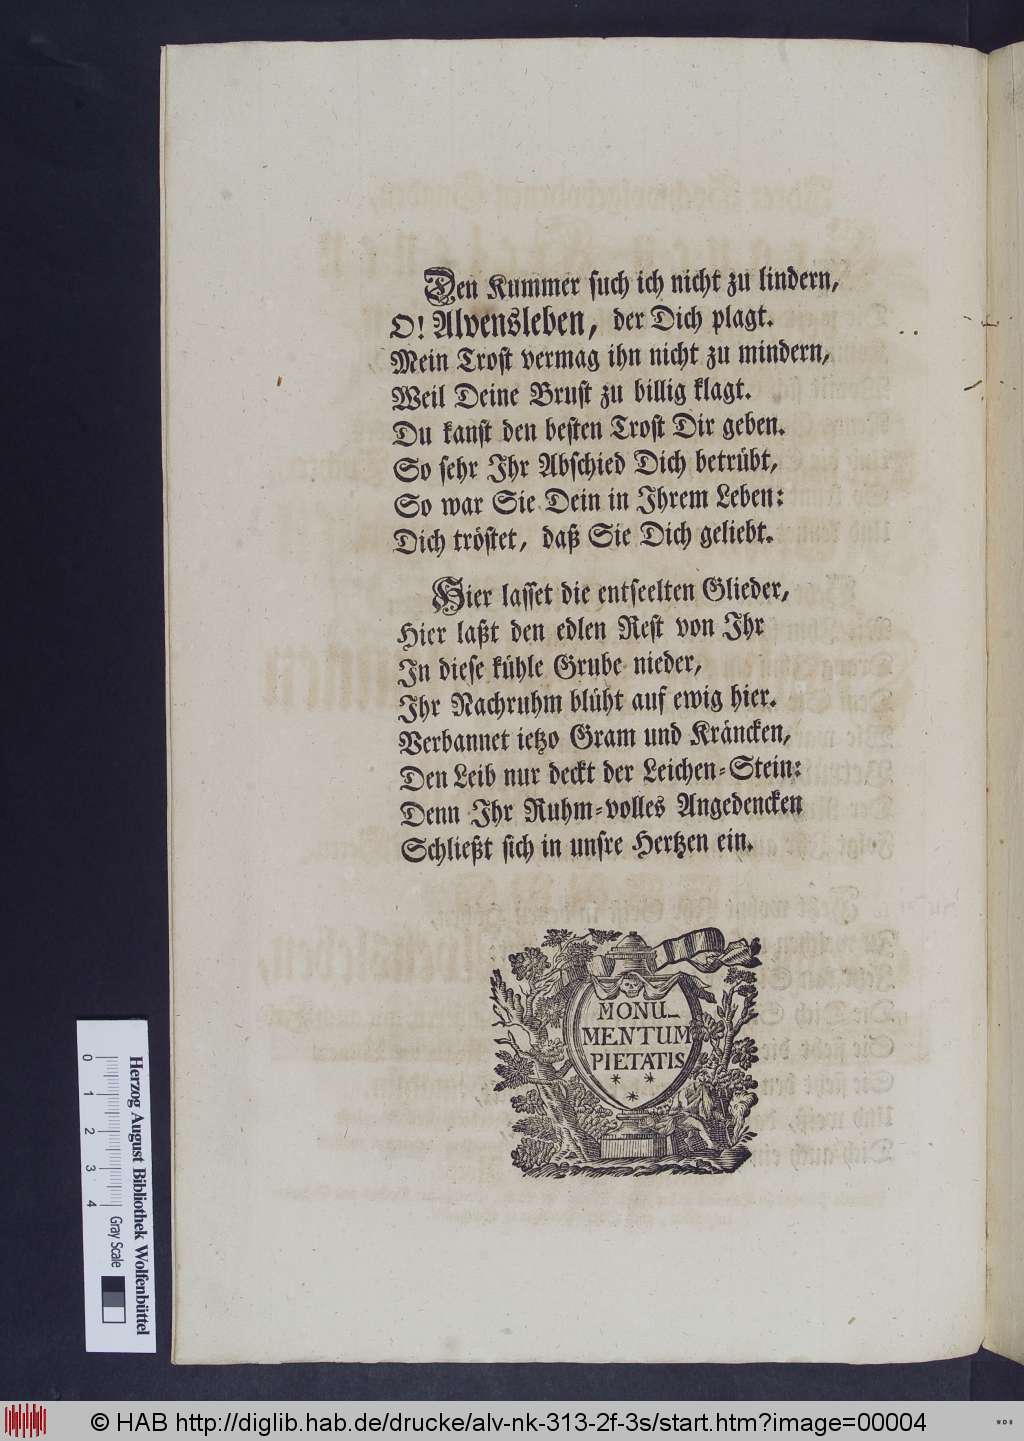 Den Kummer such ich nicht zu lindern,
O! Alvensleben, der Dich plagt.
Mein Trost vermag ihn nicht zu mindern,
Weil Deine Brust zu billig klagt.
Du kanst den besten Trost Dir geben.
So sehr Ihr Abschied Dich betrübt,
So war Sie Dein in Ihrem Leben:
Dich tröstet, daß Sie Dich geliebt.
Hier lasset die entseelten Glieder,
Hier laßt den edlen Rest von Ihr
In diese kühle Grube nieder,
Ihr Nachruhm blüht auf ewig hier.
Verbannet ietzo Gram und Kräncken,
Den Leib nur deckt der Leichen-Stein:
Denn Ihr Ruhm-volles Angedencken
Schließt sich in unsre Hertzen ein.
MONU-
MENTUM
PIETATIS
* *
*
0 1 2 3 4
Herzog August Bibliothek Wolfenbüttel
Gray Scale
© HAB http://diglib.hab.de/drucke/alv-nk-313-2f-3s/start.htm?image=00004